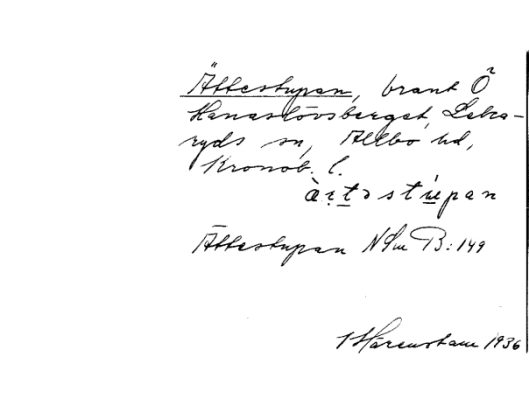 Ättestupan, brant Ö
Hanaslövsberget, Leka-
ryds sn, Allbo hd,
Kronob. l.
Ättestupan NSm B: 149
Härenstam 1936